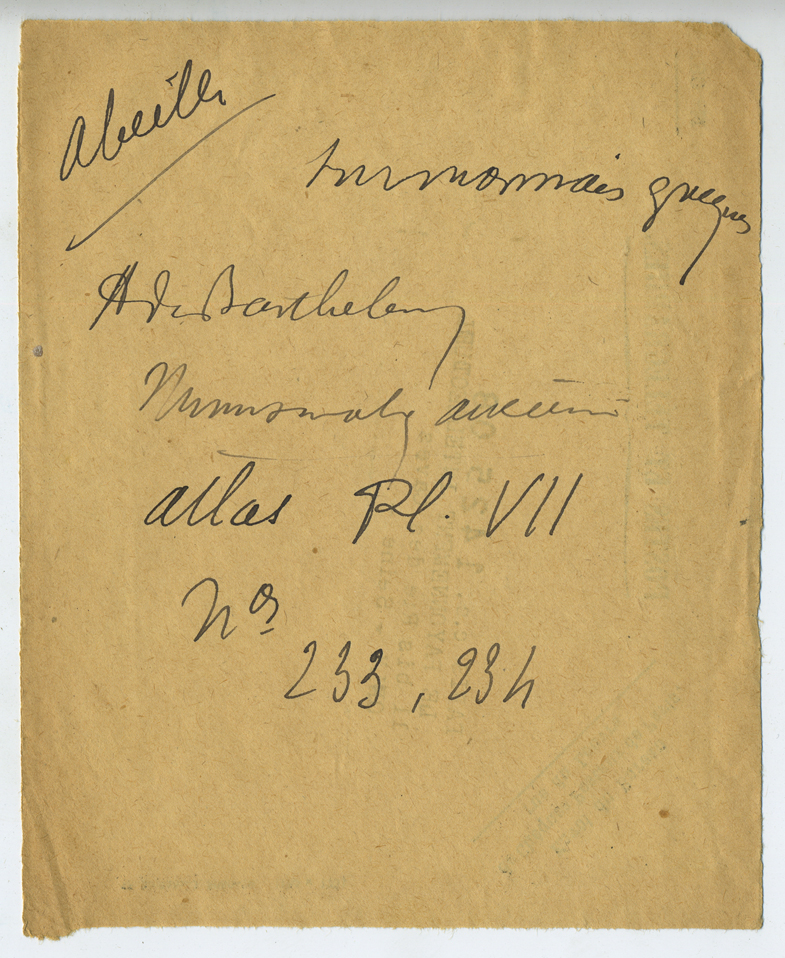 Abeille
sur monnais grecques
A de Barthelemy
Numismatiq ancienn
atlas Pl. VII
Nos
233, 234